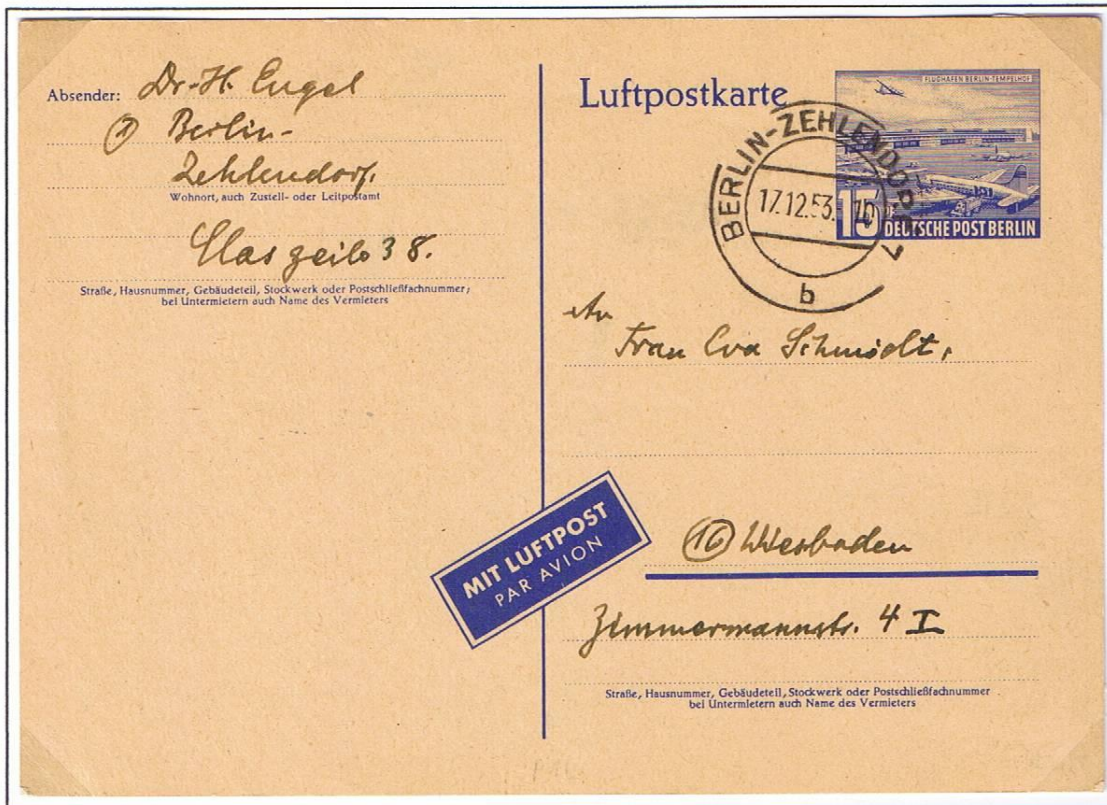 Absender: Dr. H. Engel
Berlin-
Zehlendorf.
Wohnort, auch Zustell- oder Leitpostamt
38.
Straße, Hausnummer, Gebäudeteil, Stockwerk oder Postschließfachnummer;
bei Untermietern auch Name des Vermieters
Luftpostkarte
FLUGHAFEN BERLIN-TEMPELHOF
15 DEUTSCHE POST BERLIN
BERLIN-ZEHLENDORF
17.12.53.
b
An
Frau Eva Schmidt,
MIT LUFTPOST
PAR AVION
(16) Wiesbaden
Zimmermannstr. 4 I
Straße, Hausnummer, Gebäudeteil, Stockwerk oder Postschließfachnummer
bei Untermietern auch Name des Vermieters